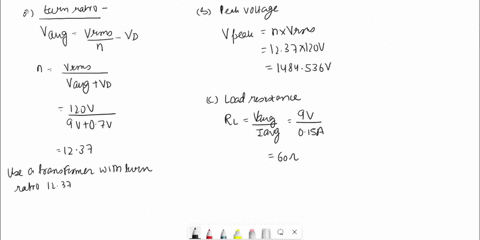 a) turn ratio -
Vavg = Vrms/n - VD
n = Vrms/Vavg+VD
= 120V/9V+0.7V
= 12.37
Use a transformer with turn
ratio 12.37
(b) Peak voltage
Vpeak = n x Vrms
= 12.37 x 120V
= 1484.536V
(c) Load resistance
RL = Vavg/Iavg = 9V/0.15A
= 60Ω